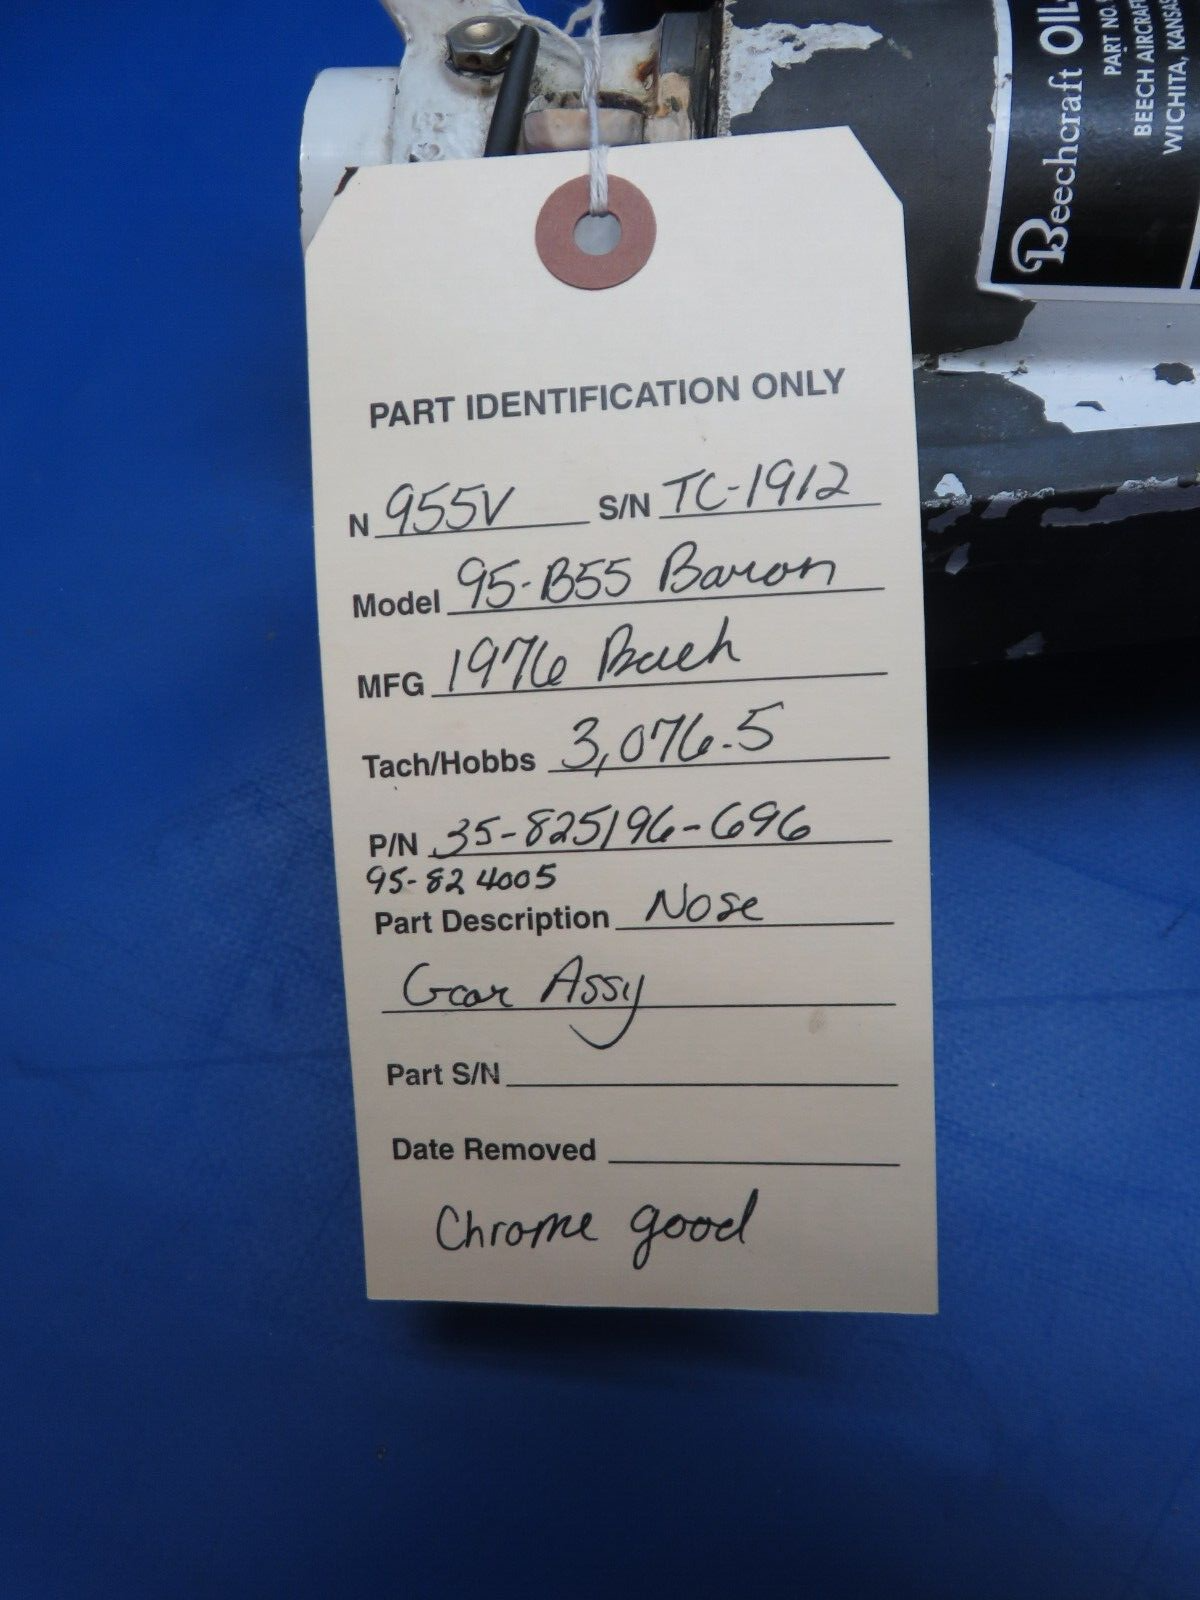 Beechcraft OIL
PART NO.
BEECH AIRCRAFT
WICHITA, KANSAS
PART IDENTIFICATION ONLY
N 955V S/N TC-1912
Model 95-B55 Baron
MFG 1976 Beech
Tach/Hobbs 3,076.5
P/N 35-825196-696
95-824005
Part Description Nose
Gear Assy
Part S/N
Date Removed
Chrome good